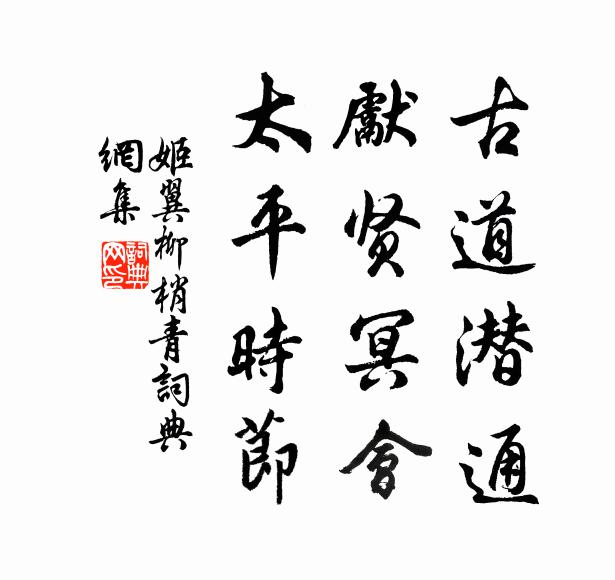 古道潜通
獻贤冥會
太平時節
姬翼柳梢青詞典
網集
詞典
网印